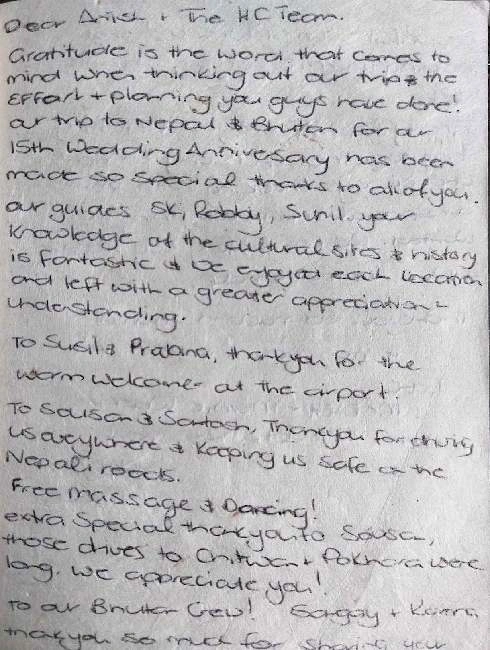 Dear & The HC Team.
Gratitude is the word that comes to
mind when thinking out our trip & the
Effort + planning you guys have done!
our trip to Nepal & Bhutan for our
15th Wedding Anniversary has been
made so special thanks to all of you.
our guides SK, Robby, Sunil, your
knowledge of the cultural sites & history
is fantastic & we enjoyed each location
and left with a greater appreciation &
understanding.
To Susil & Prabina, thankyou for the
warm welcome at the airport.
To Sousan & Santosh, Thankyou for driving
us everywhere & keeping us safe on the
Nepali roads.
Free massage & Dancing!
extra special thankyou to Sousan,
those drives to Chitwan & Pokhara were
long. we appreciate you!
To our Bhutan Crew! Sangay + Karma
thankyou so much for sharing your